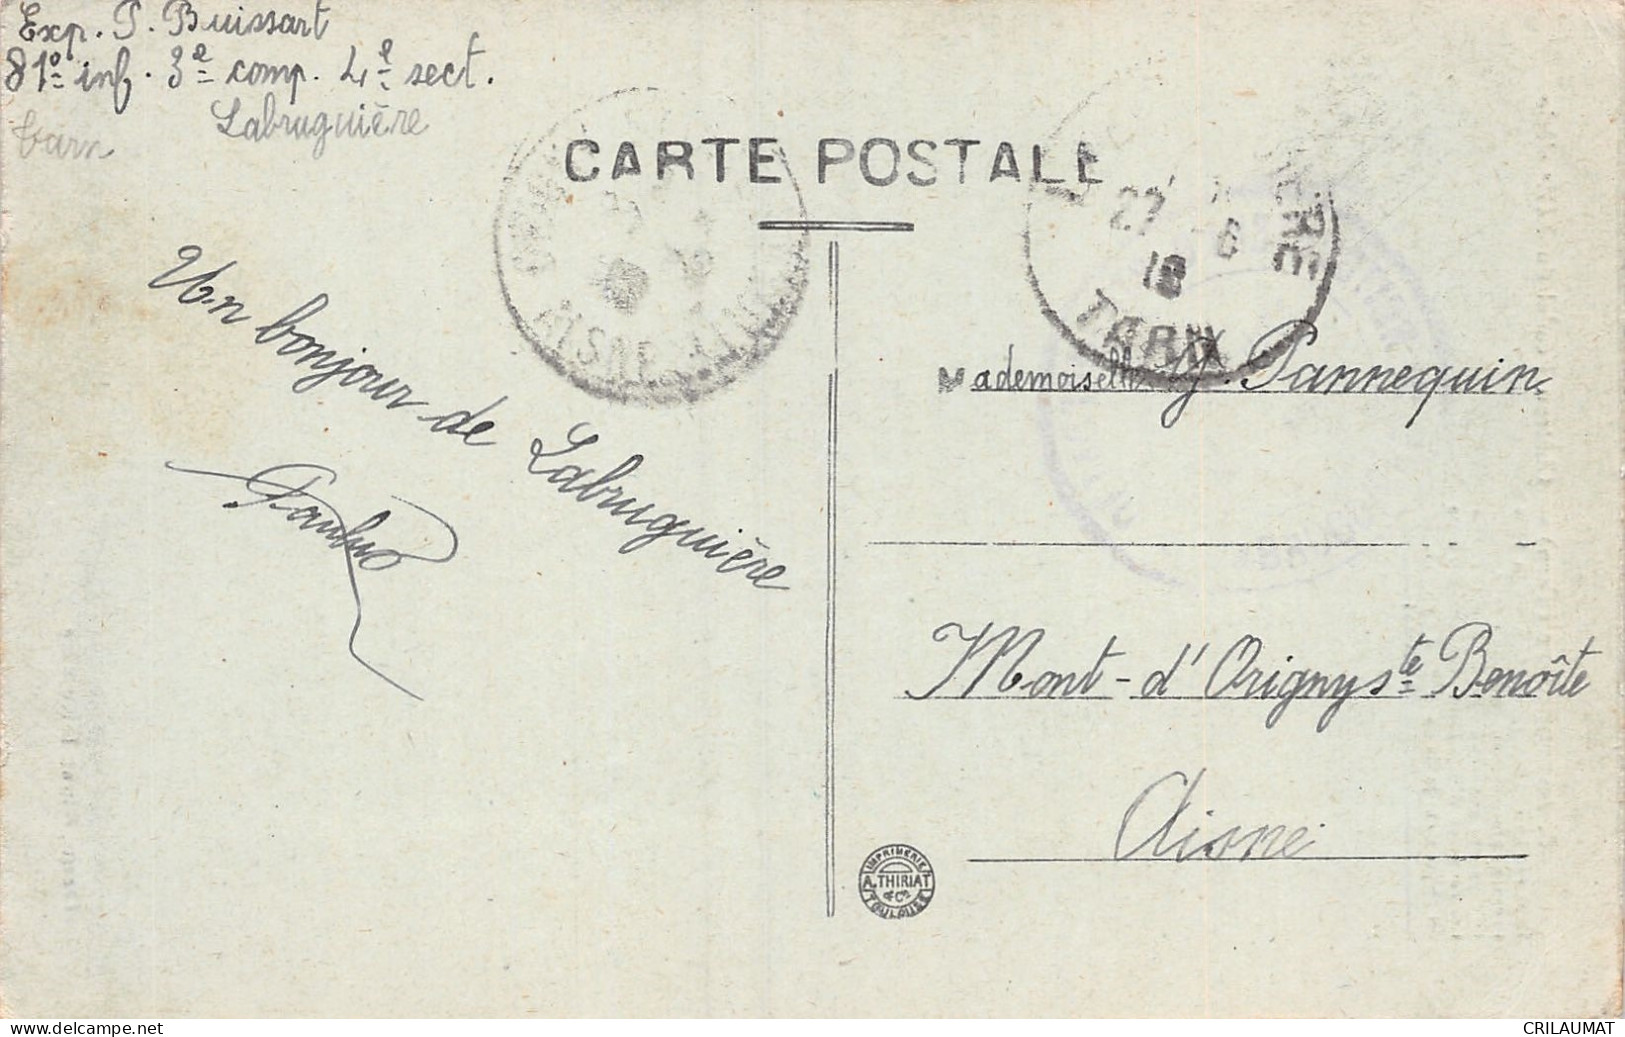 Exp. P. Buissart
81º inf. 3e comp. 4e sect.
Labruguière
tarn
CARTE POSTALE
27 6
19
TARN
AISNE
Un bonjour de Labruguière
Mademoiselle G. Pannequin
Mont-d'Origny Ste Benoîte
Aisne
IMPRIMERIE
A. THIRIAT
& Cie
TOULOUSE
CRILAUMAT